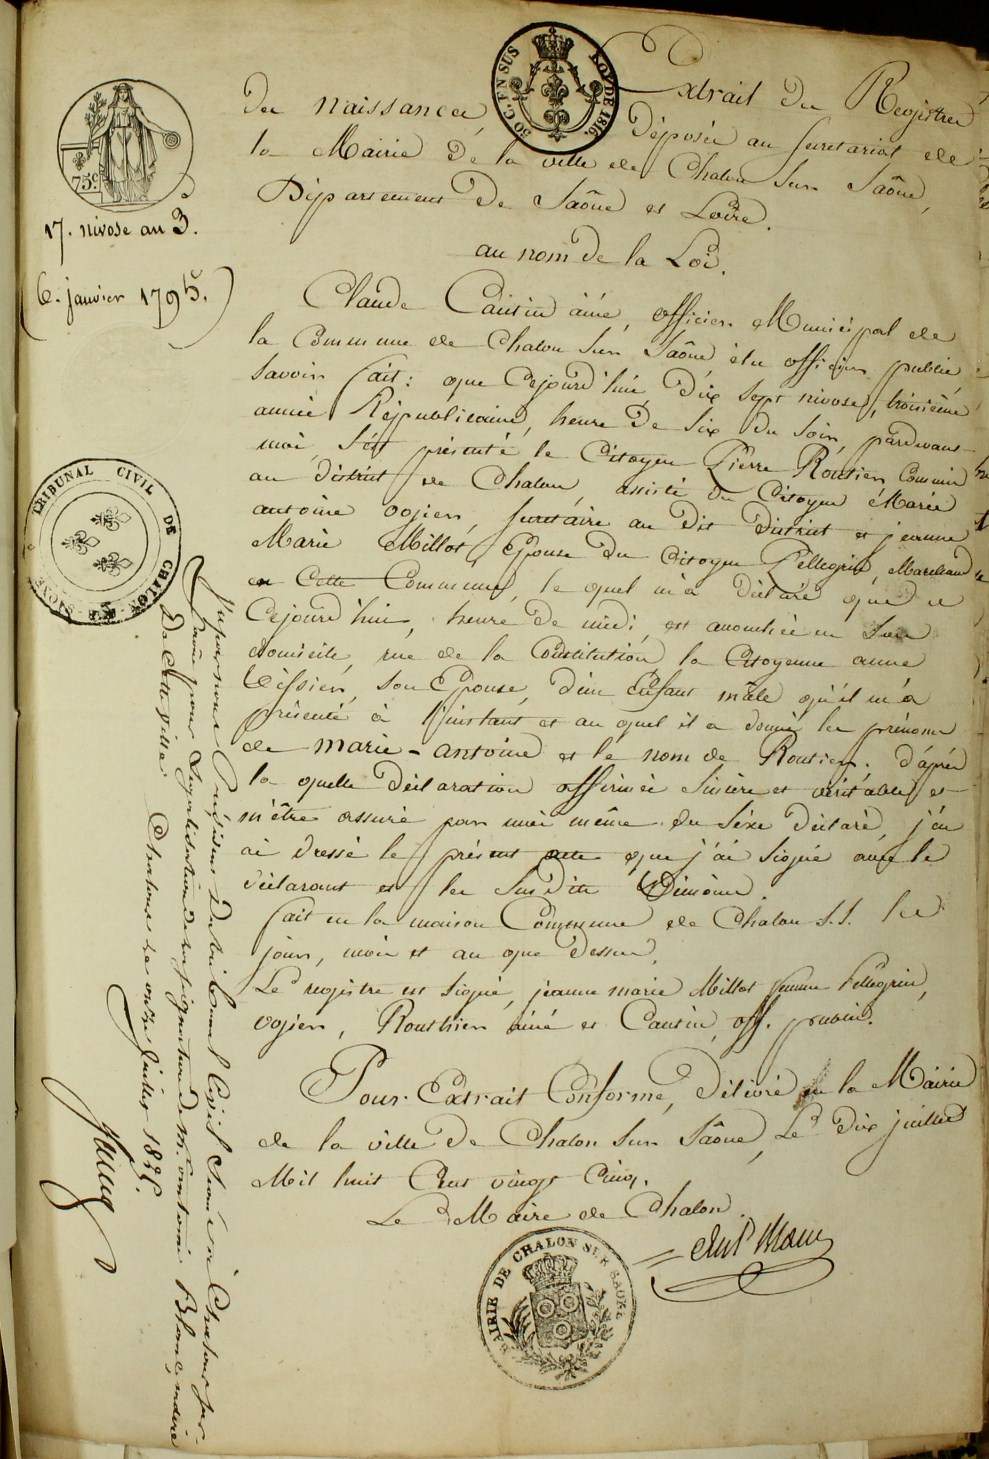 Extrait du Registre
des naissances, déposé au secretariat de
la Mairie de la ville de Chalon sur Saône,
Département de Saône et Loire.
au nom de la Loi.
Claude Cautin ainé, officier Municipal de
la Commune de Chalon sur Saône élu officier public
savoir fait : que Cejourd'hui, dix sept nivose, troisième
année Républicaine, heure de six du soir, pardevant
moi, s'est présenté le Citoyen Pierre Routier, Commis
au district de Chalon, assisté du Citoyen Marie
antoine vogien, secretaire au dit District et jeanne
Marie Millot, Epouse du Citoyen Pellegrin, Marchand
en Cette Commune, le quel m'a déclaré que ce
Cejourd'hui, heure de midi, est accouchée en son
domicile, rue de la Constitution, la Citoyenne anne
son Epouse, d'un Enfant mâle qu'il m'a
présenté à l'instant et au quel il a donné les prénoms
de marie-antoine et le nom de Routier. d'après
la quelle déclaration affirmée sincère et véritable, et
m'être assuré par moi même du sèxe déclaré, j'en
ai dressé le présent acte que j'ai signé avec le
déclarant et les susdits témoins.
fait en la maison Commune de Chalon S.S. les
jour, mois et an que dessus.
Le registre est signé, jeanne marie Millot femme Pellegrin,
vogien, Routhier ainé et Cautin, off. public.
Pour Extrait Conforme, délivré en la Mairie
de la ville de Chalon sur Saône, Le dix juillet
Mil huit Cent vingt Cinq.
Le Maire de Chalon.
50 C. EN SUS
LOI DE 1816.
75c
17. nivose an 3.
(6. janvier 1795.)
TRIBUNAL CIVIL DE CHALON-SUR-SAONE
Vu par nous Président du tribunal Civil séant à Chalon sur
Saône pour légalisation de la signature de Mr.
De Cette ville. Chalon le onze juillet 1825.
MAIRIE DE CHALON SUR SAONE